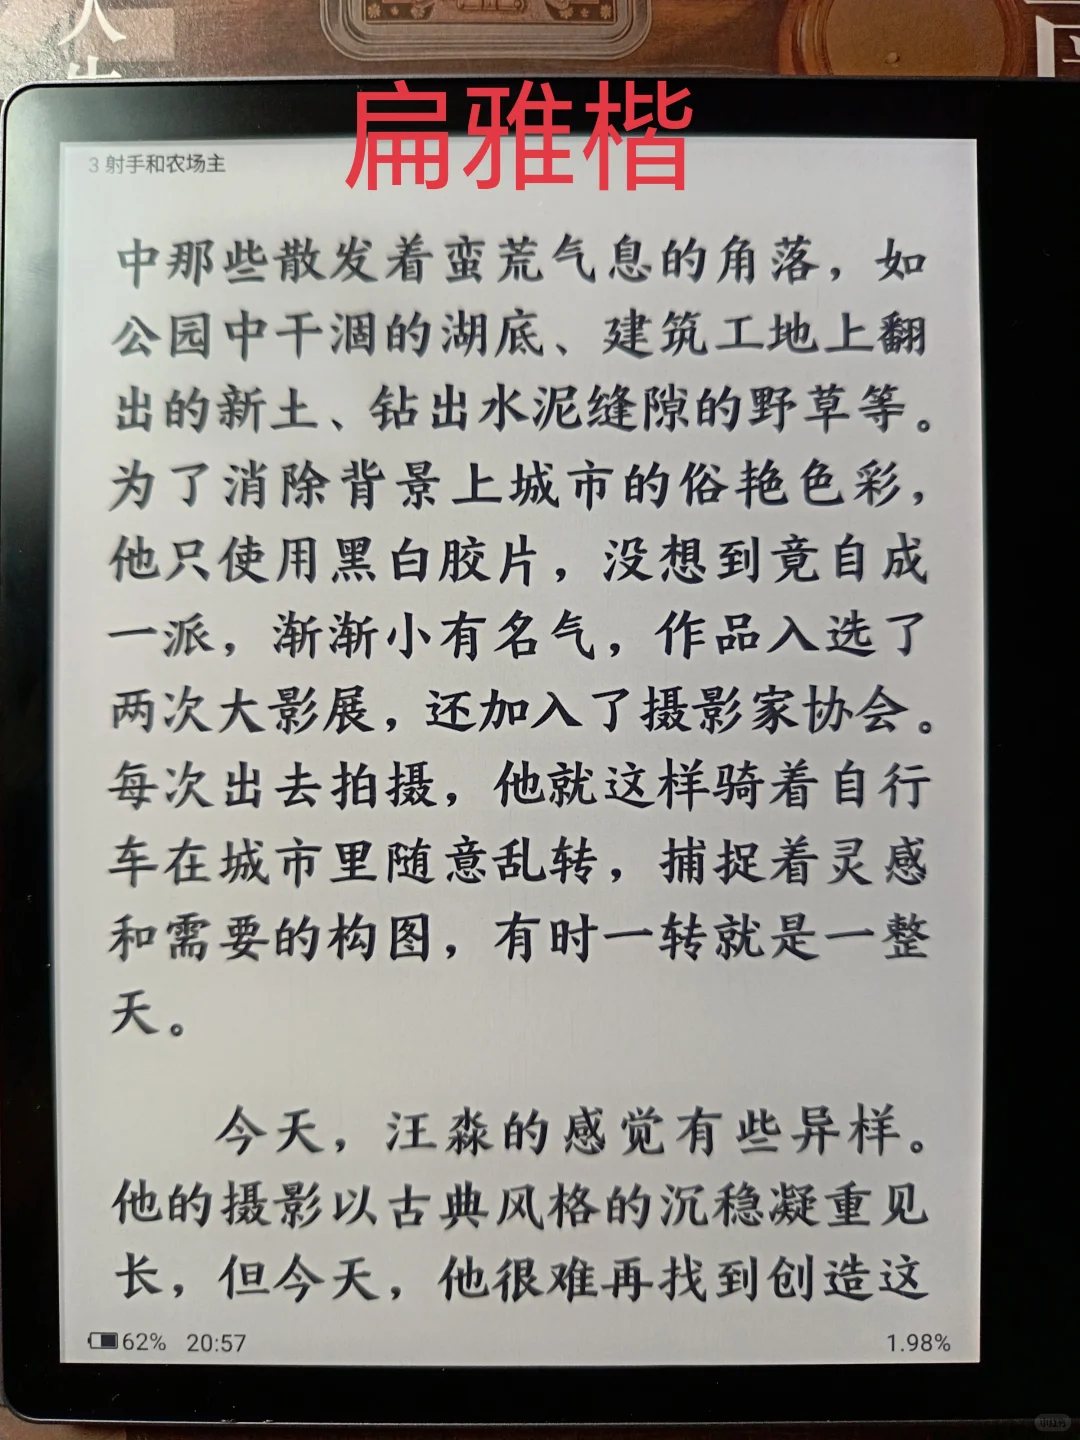 人生
扁雅楷
3 射手和农场主
中那些散发着蛮荒气息的角落，如
公园中干涸的湖底、建筑工地上翻
出的新土、钻出水泥缝隙的野草等。
为了消除背景上城市的俗艳色彩，
他只使用黑白胶片，没想到竟自成
一派，渐渐小有名气，作品入选了
两次大影展，还加入了摄影家协会。
每次出去拍摄，他就这样骑着自行
车在城市里随意乱转，捕捉着灵感
和需要的构图，有时一转就是一整
天。
今天，汪淼的感觉有些异样。
他的摄影以古典风格的沉稳凝重见
长，但今天，他很难再找到创造这
62% 20:57
1.98%
小红书